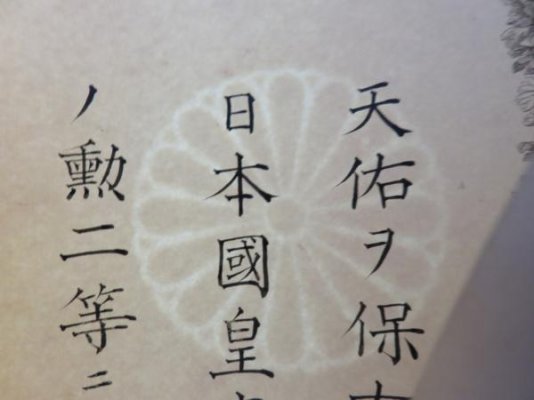 天佑ヲ保
日本國皇
ノ勲二等ニ